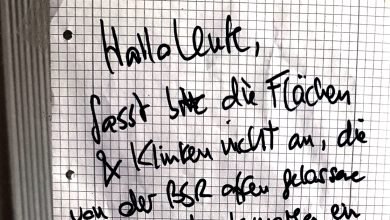 Hallo Leute,
fasst bitte die Flächen
& Klinken nicht an, die
von der BSR offen gelassene
ein